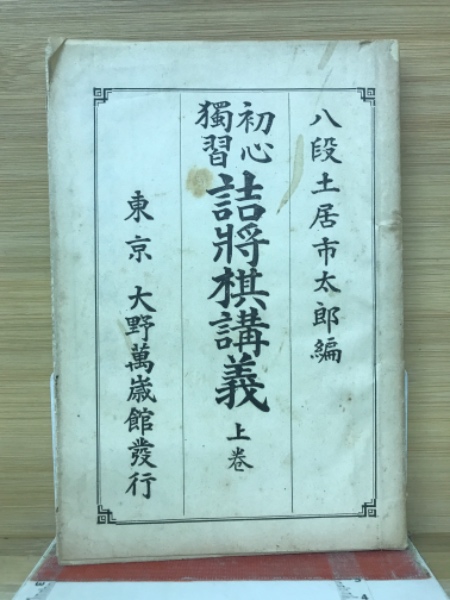 八段土居市太郎編
初心獨習 詰將棋講義 上巻
東京 大野萬歳館發行